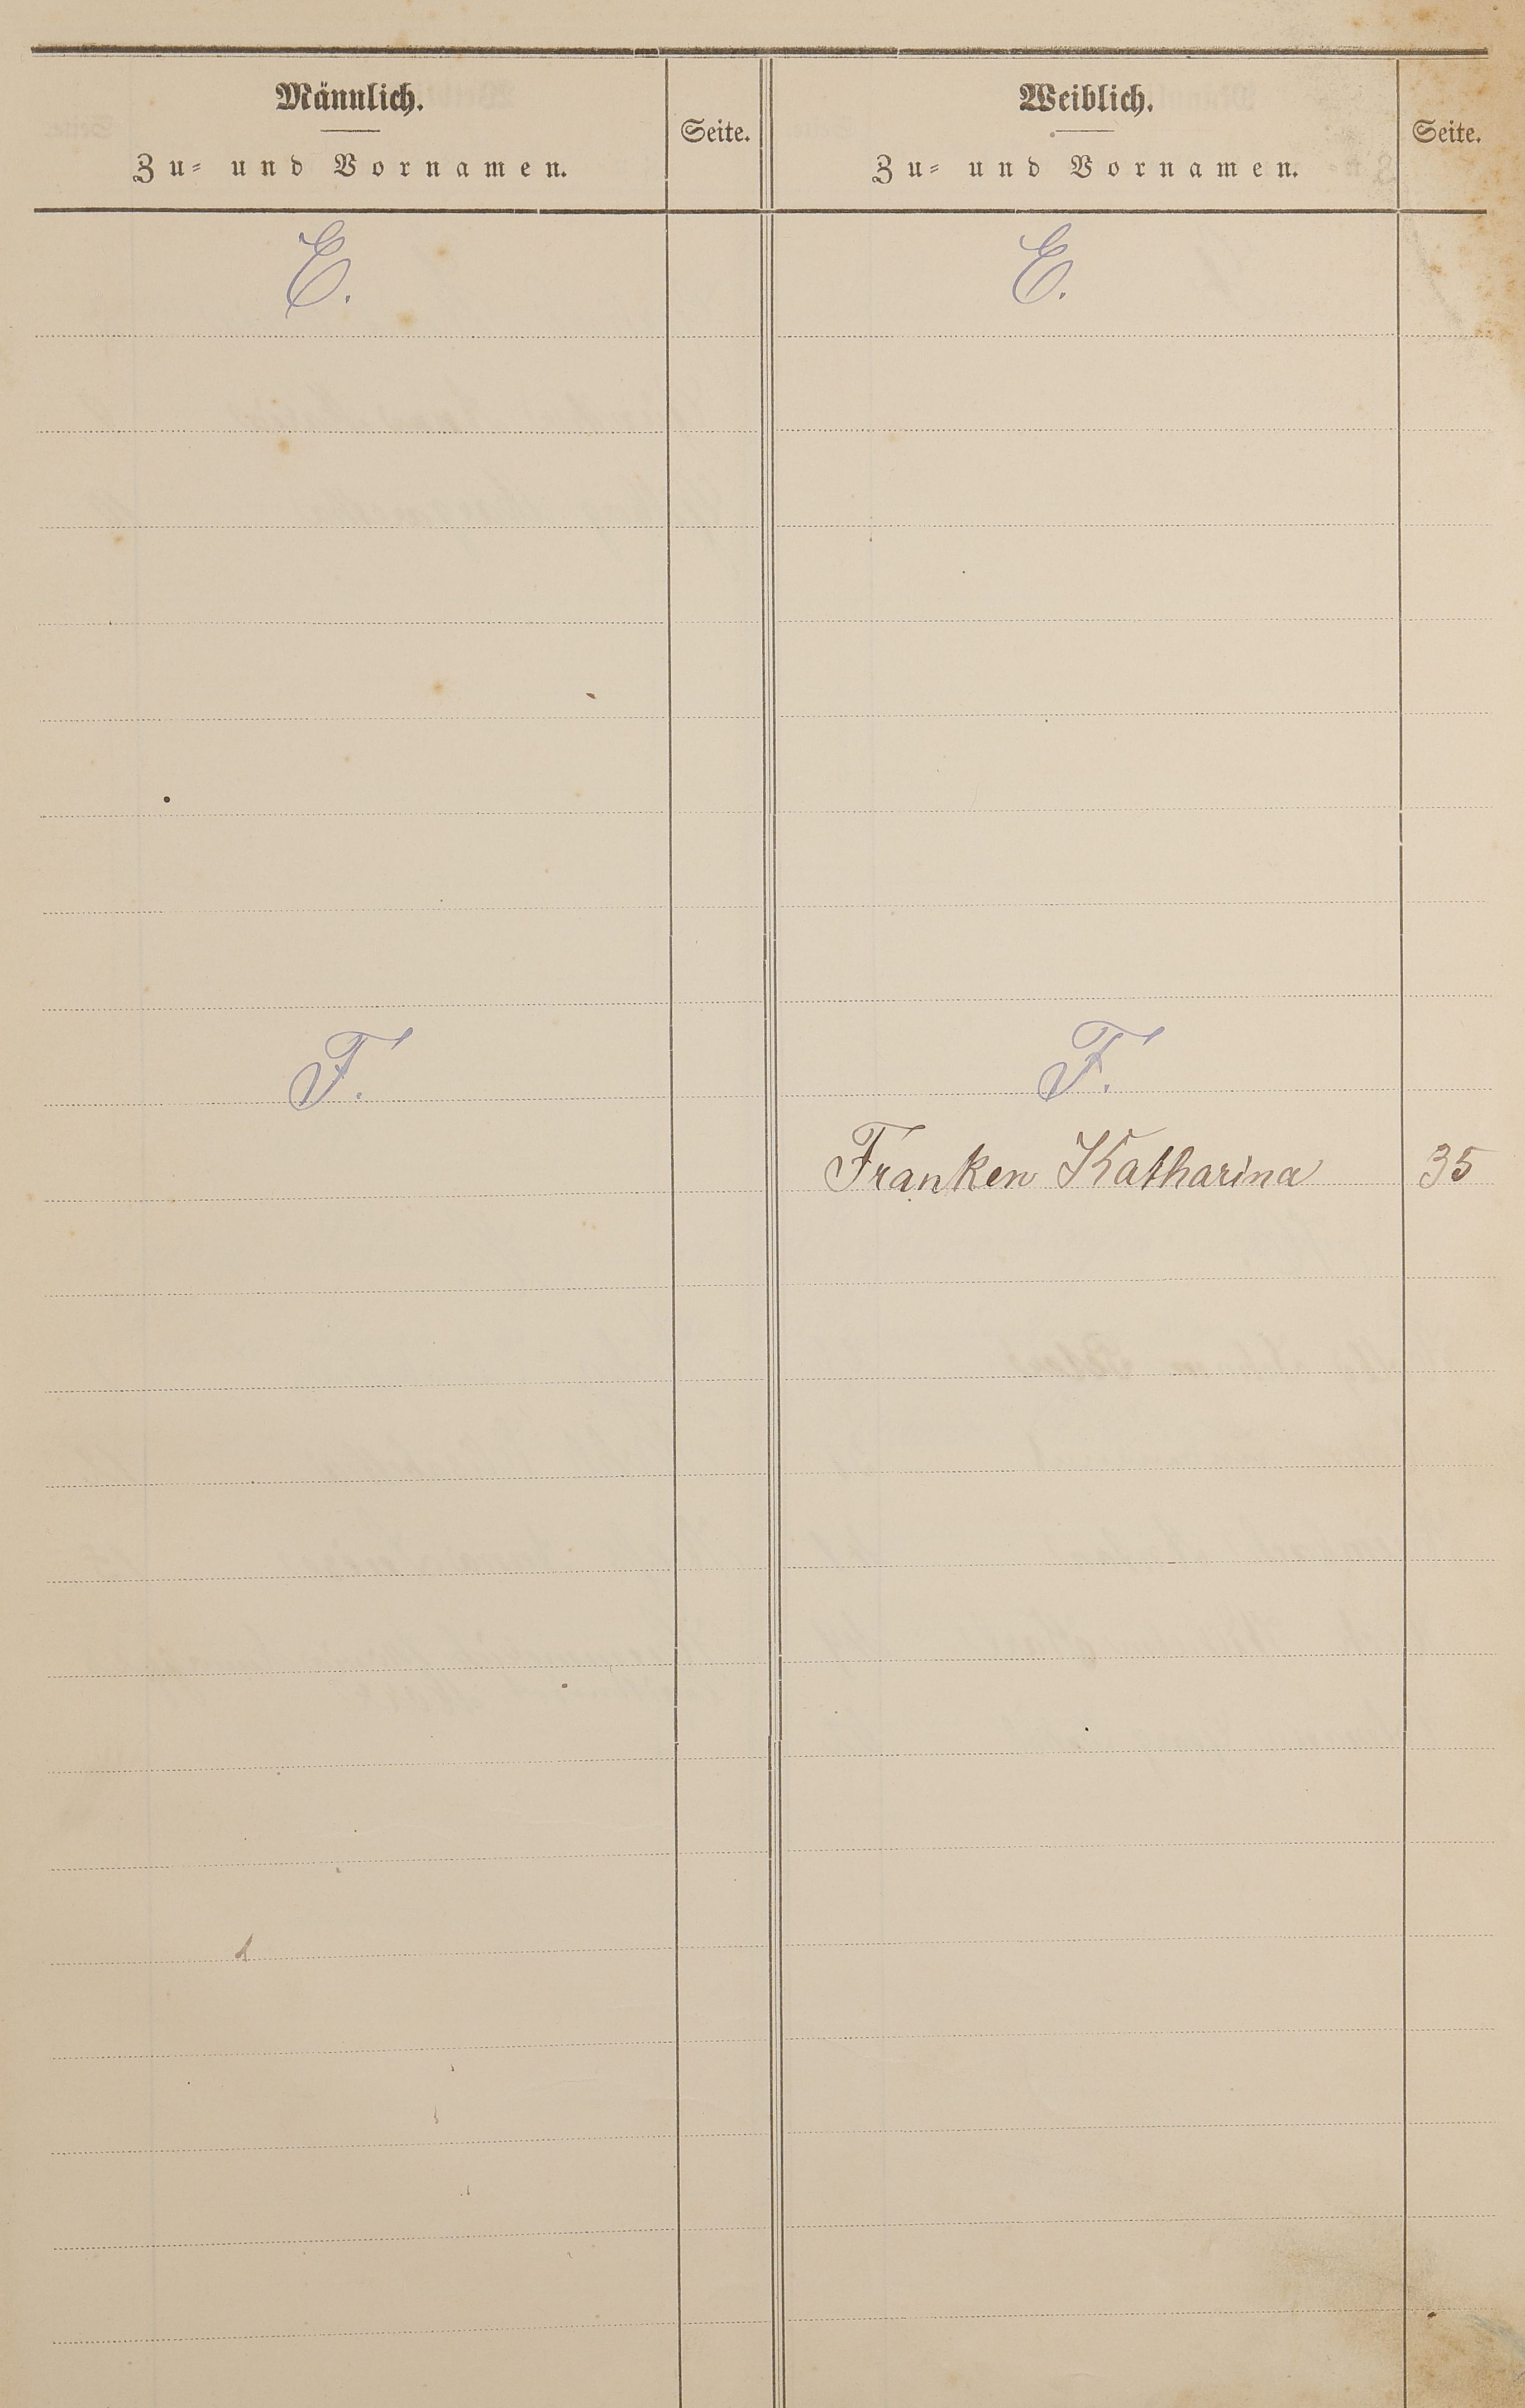 Männlich.
Zu- und Vornamen.
Seite.
Weiblich.
Zu- und Vornamen.
Seite.
E.
E.
F.
F.
Franken Katharina 35